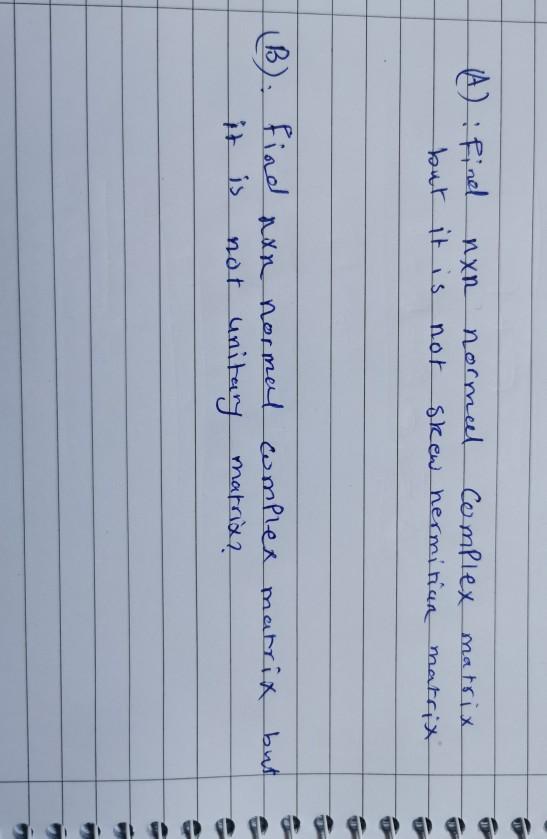 (A) : Find nxn normal complex matrix
but it is not skew hermitian matrix.
(B). Find nxn normal complex matrix but
it is not unitary matrix?